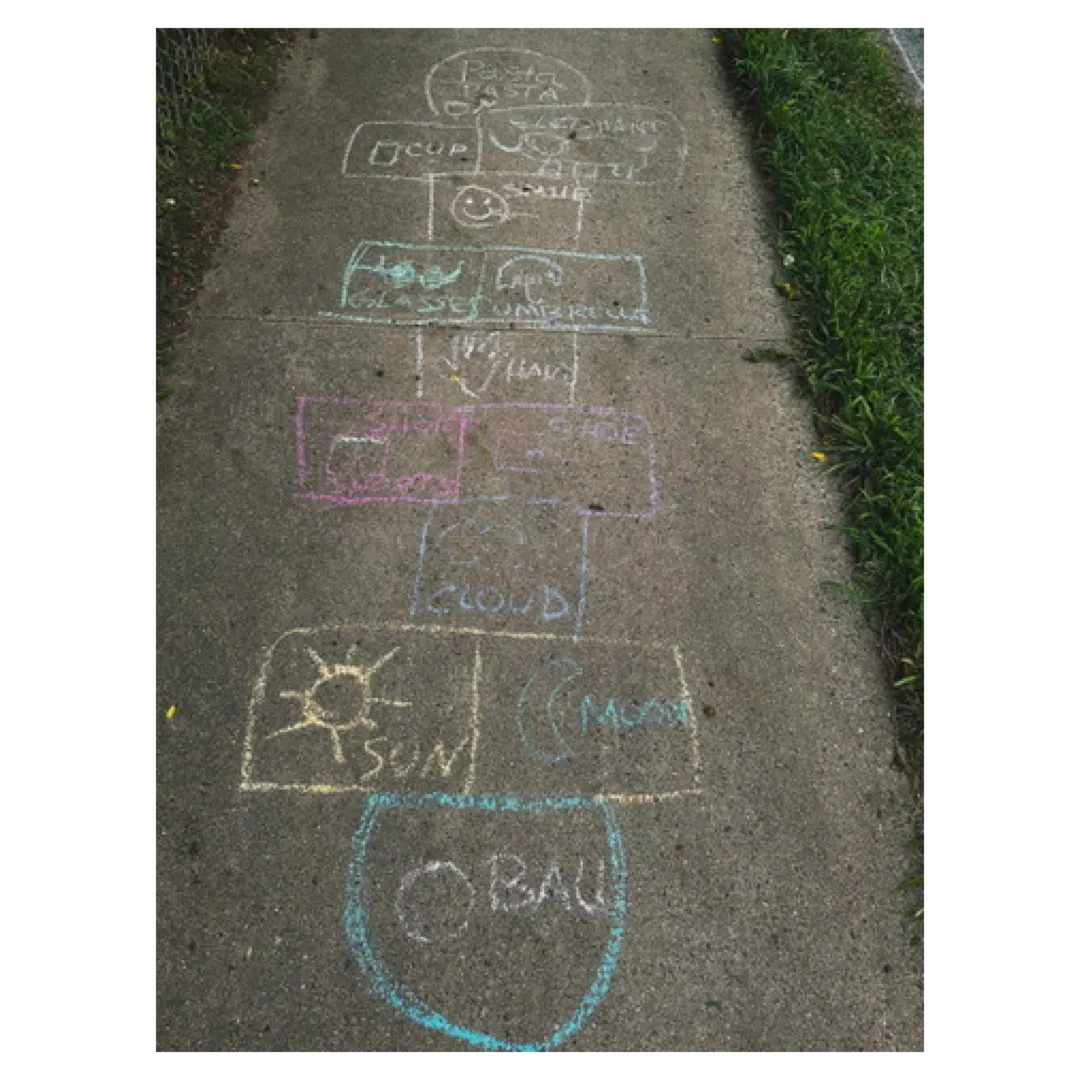 Pasta
PASTA
CUP
ELEPHANT
SMILE
GLASSES
UMBRELLA
HAND
SHOE
CLOUD
SUN
MOON
BALL